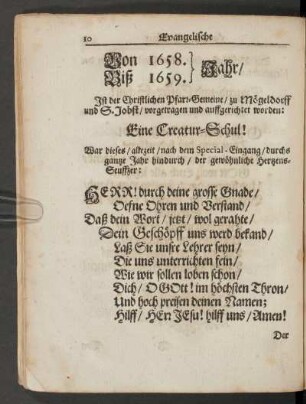 10 Evangelische
Von 1658. } Jahr/
Biß 1659.
Ist der Christlichen Pfarr-Gemeine/ zu Mögeldorff
und S. Jobst/ vorgetragen und auffgerichtet worden:
Eine Creatur-Schul!
War dieses/ allezeit/ nach dem Special-Eingang/ durchs
gantze Jahr hindurch/ der gewöhnliche Hertzens-
Seuffzer:
HERR! durch deine grosse Gnade/
Oefne Ohren und Verstand/
Daß dein Wort/ jetzt/ wol gerahte/
Dein Geschöpff uns werd bekand/
Laß Sie unsre Lehrer seyn/
Die uns unterrichten fein/
Wie wir sollen loben schon/
Dich/ O GOtt! im höchsten Thron/
Und hoch preisen deinen Namen;
Hilff/ HErr JEsu! hilff uns/ Amen!
Der